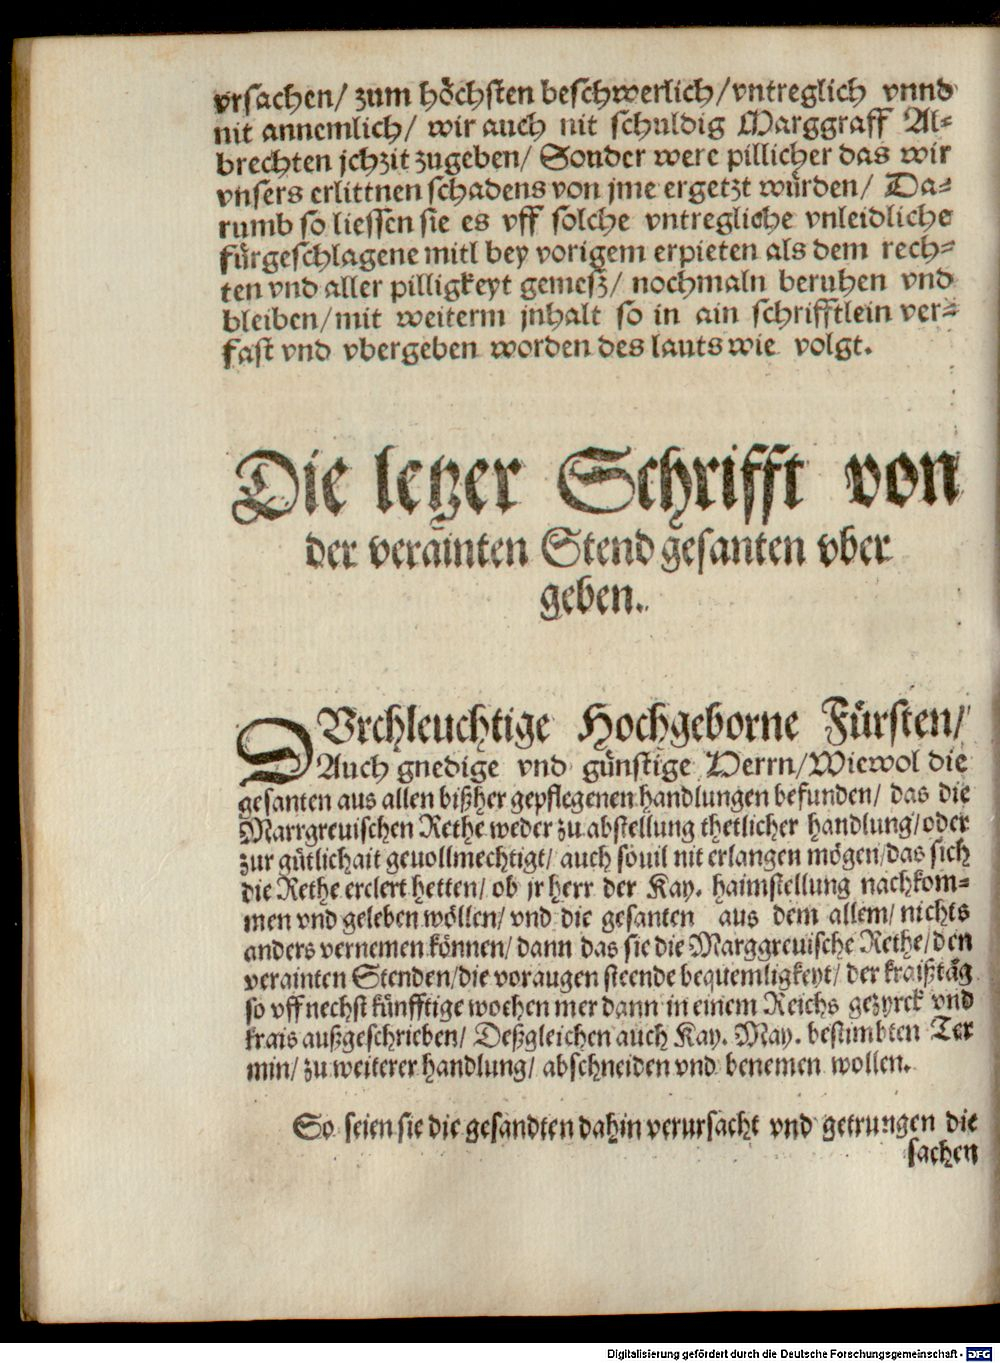 vrsachen/ zum höchsten beschwerlich/vntreglich vnnd
nit annemlich/ wir auch nit schuldig Marggraff Al-
brechten jchzit zugeben/ Sonder were pillicher das wir
vnsers erlittnen schadens von jme ergetzt würden/ Da-
rumb so liessen sie es vff solche vntregliche vnleidliche
fürgeschlagene mitl bey vorigem erpieten als dem rech-
ten vnd aller pilligkeyt gemesz/ nochmaln beruhen vnd
bleiben/mit weiterm jnhalt so in ain schrifftlein ver-
fast vnd vbergeben worden des lauts wie volgt.
Die letzer Schrifft von
der verainten Stend gesanten vber
geben.
DVrchleuchtige Hochgeborne Fürsten/
Auch gnedige vnd günstige Herrn/Wiewol die
gesanten aus allen bißher gepflegenen handlungen befunden/ das die
Marrgreuischen Rethe weder zu abstellung thetlicher handlung/oder
zur gütlichait geuollmechtigt/ auch souil nit erlangen mögen/das sich
die Rethe erclert hetten/ ob jr herr der Kay. haimstellung nachkom-
men vnd geleben wöllen/ vnd die gesanten aus dem allem/ nichts
anders vernemen können/ dann das sie die Marggreuische Rethe/den
verainten Stenden/die voraugen steende bequemligkeyt/ der kraißtäg
so vff nechst künfftige wochen mer dann in einem Reichs gezyrck vnd
krais außgeschrieben/ Deßgleichen auch Kay. May. bestimbten Ter
min/ zu weiterer handlung/ abschneiden vnd benemen wollen.
So seien sie die gesandten dahin verursacht vnd getrungen die
sachen
Digitalisierung gefördert durch die Deutsche Forschungsgemeinschaft - DFG